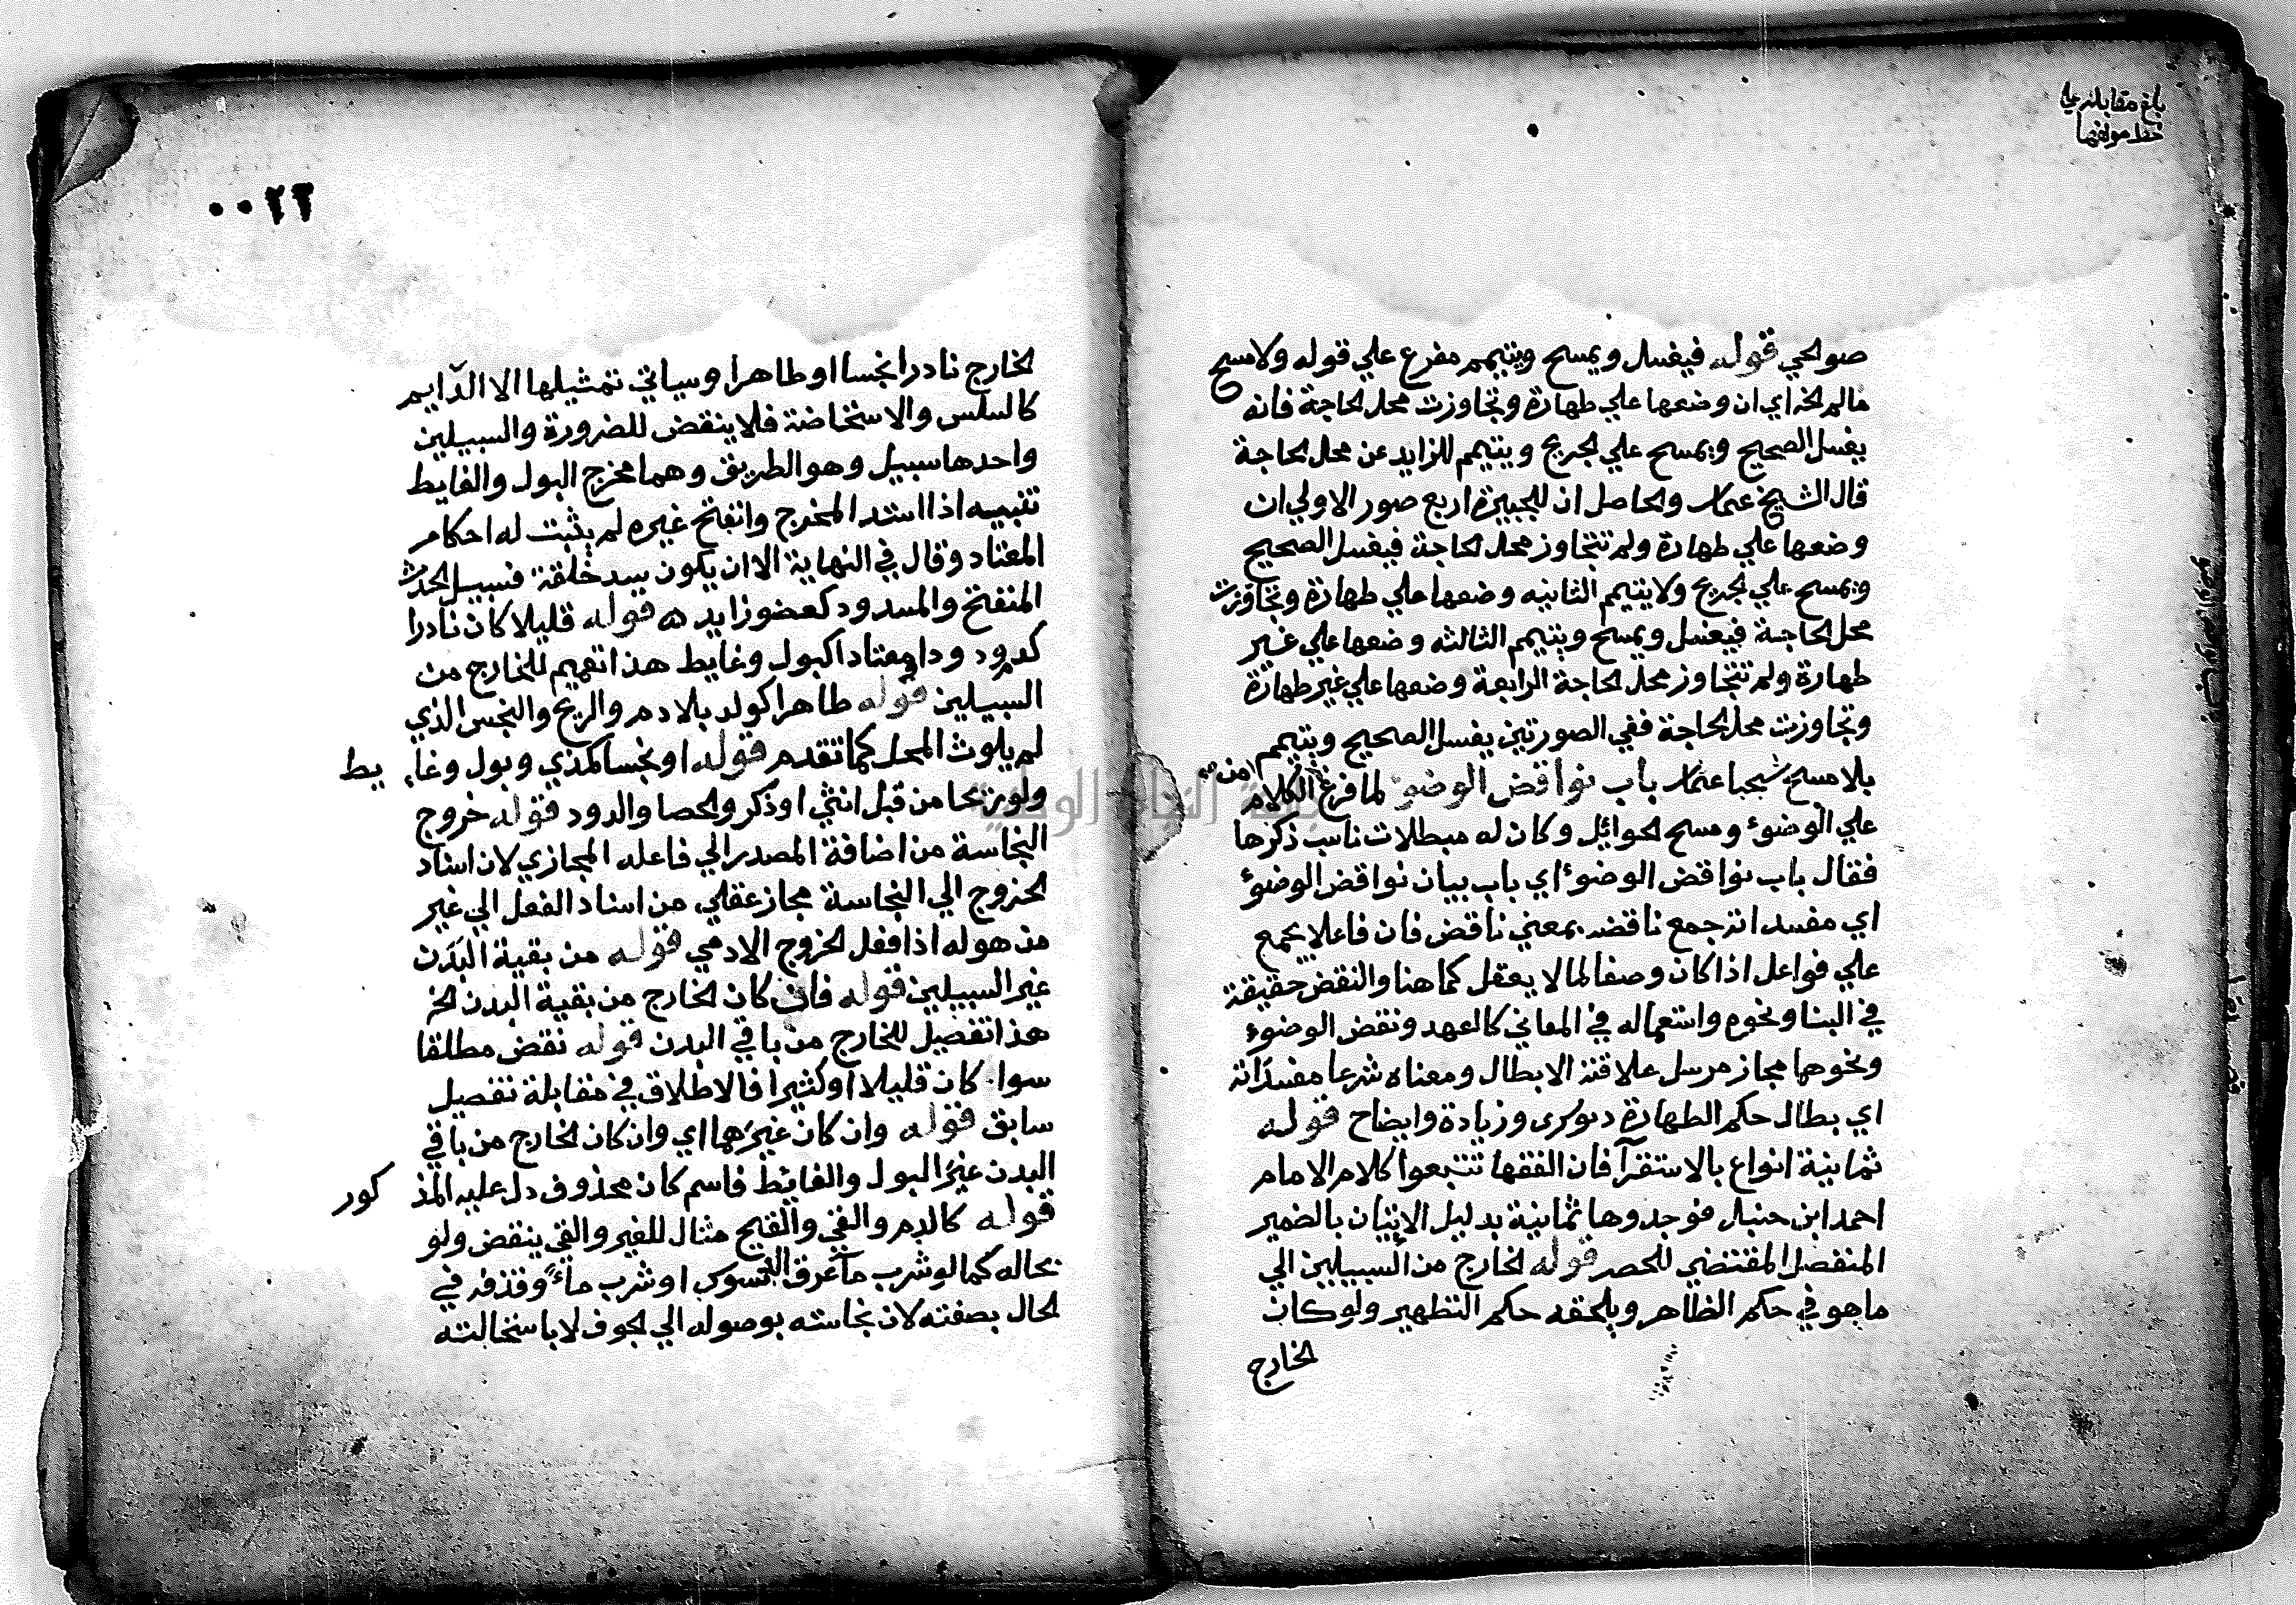 بلغ مقابلة علي
خط مولفها
صوالحي قوله فيغسل ويمسح ويتيمم مفرع علي قوله ولا مسح
مالم الخ اي ان وضعها علي طهارة وتجاوزت محل الحاجة فانه
يغسل الصحيح ويمسح علي الجريح ويتيمم للزايد عن محل الحاجة
قال الشيخ عثمان والحاصل ان للجبيرة اربع صور الاولي ان
وضعها علي طهارة ولم تتجاوز محل الحاجة فيغسل الصحيح
ويمسح علي الجريح ولا يتيمم الثانيه وضعها علي طهارة وتجاوزت
محل الحاجة فيغسل ويمسح ويتيمم الثالثه وضعها علي غير
طهارة ولم تتجاوز محل الحاجة الرابعة وضعها علي غير طهارة
وتجاوزت محل الحاجة ففي الصورتين يغسل الصحيح ويتيمم
بلا مسح شيخنا عثمان باب نواقض الوضو لما فرغ من الكلام
علي الوضوء ومسح الحوائل وكان له مبطلات ناسب ذكرها
فقال باب نواقض الوضوء اي باب بيان نواقض الوضوء
اي مفسداته جمع ناقضه بمعني ناقض فان فاعلا يجمع
علي فواعل اذا كان وصفا لما لا يعقل كما هنا والنقض حقيقة
في البنا ونحوه واستعماله في المعاني كالعهد ونقض الوضوء
ونحوها مجاز مرسل علاقته الابطال ومعناه شرعا مفسداته
اي بطال حكم الطهارة دنوشري وزيادة وايضاح قوله
ثمانية انواع بالاستقرآ فان الفقها تتبعوا كلام الامام
احمد ابن حنبل فوجدوها ثمانية بدليل الاتيان بالضمير
المنفصل المقتضي للحصر قوله الخارج من السبيلين الي
ما هو في حكم الظاهر ويلحقه حكم التطهير ولو كان
الخارج
٠٠٢٢
الخارج نادرا نجسا او طاهرا وسياتي تمثيلها الا الدايم
كالسلس والاستحاضة فلا ينقض للضرورة والسبيلين
واحدها سبيل وهو الطريق وهما مخرج البول والغايط
تنبيه اذا استد المخرج وانفتح غيره لم يثبت له احكام
المعتاد وقال في النهاية الا ان يكون سد خلقة فسبيل الحدث
المنفتح والمسدود كعضو زايد ه قوله قليلا كان نادرا
كدود ودم او معتادا كبول وغايط هذا تعميم للخارج من
السبيلين قوله طاهرا كولد بلا دم والريح والنجس الذي
لم يلوث المحل كما تقدم قوله او نجسا كمذي وبول وغايط
ولو ريحا من قبل انثي او ذكر والحصا والدود قوله خروج
النجاسة من اضافة المصدر الي فاعله المجازي لان اسناد
الخروج الي النجاسة مجاز عقلي من اسناد الفعل الي غير
من هو له اذ افعل الخروج الادمي قوله من بقية البدن
غير السبيلين قوله فان كان الخارج من بقية البدن الخ
هذا تفصيل للخارج من باقي البدن قوله نقض مطلقا
سوا كان قليلا او كثيرا فالاطلاق في مقابلة تفصيل
سابق قوله وان كان غيرها اي وان كان الخارج من باقي
البدن غير البول والغائط فاسم كان محذوف دل عليه المذكور
قوله كالدم والقي والقيح مثال للغير والقي ينقض ولو
بحاله كما لو شرب ما عرق السوس او شرب ماء وقذفه في
الحال بصفته لان نجاسته بوصوله الي الجوف لا باستحالته